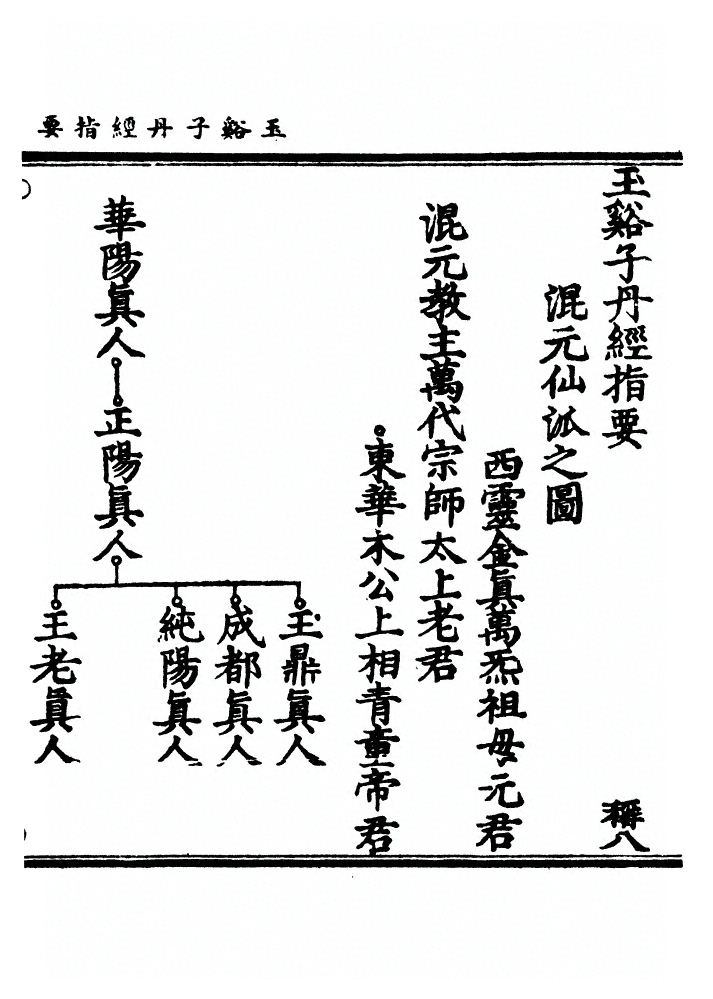 玉谿子丹經指要
玉谿子丹經指要 稱八
混元仙派之圖
西靈金眞萬炁祖母元君
混元教主萬代宗師太上老君
東華木公上相青童帝君
華陽眞人
正陽眞人
玉鼎眞人
成都眞人
純陽眞人
王老眞人